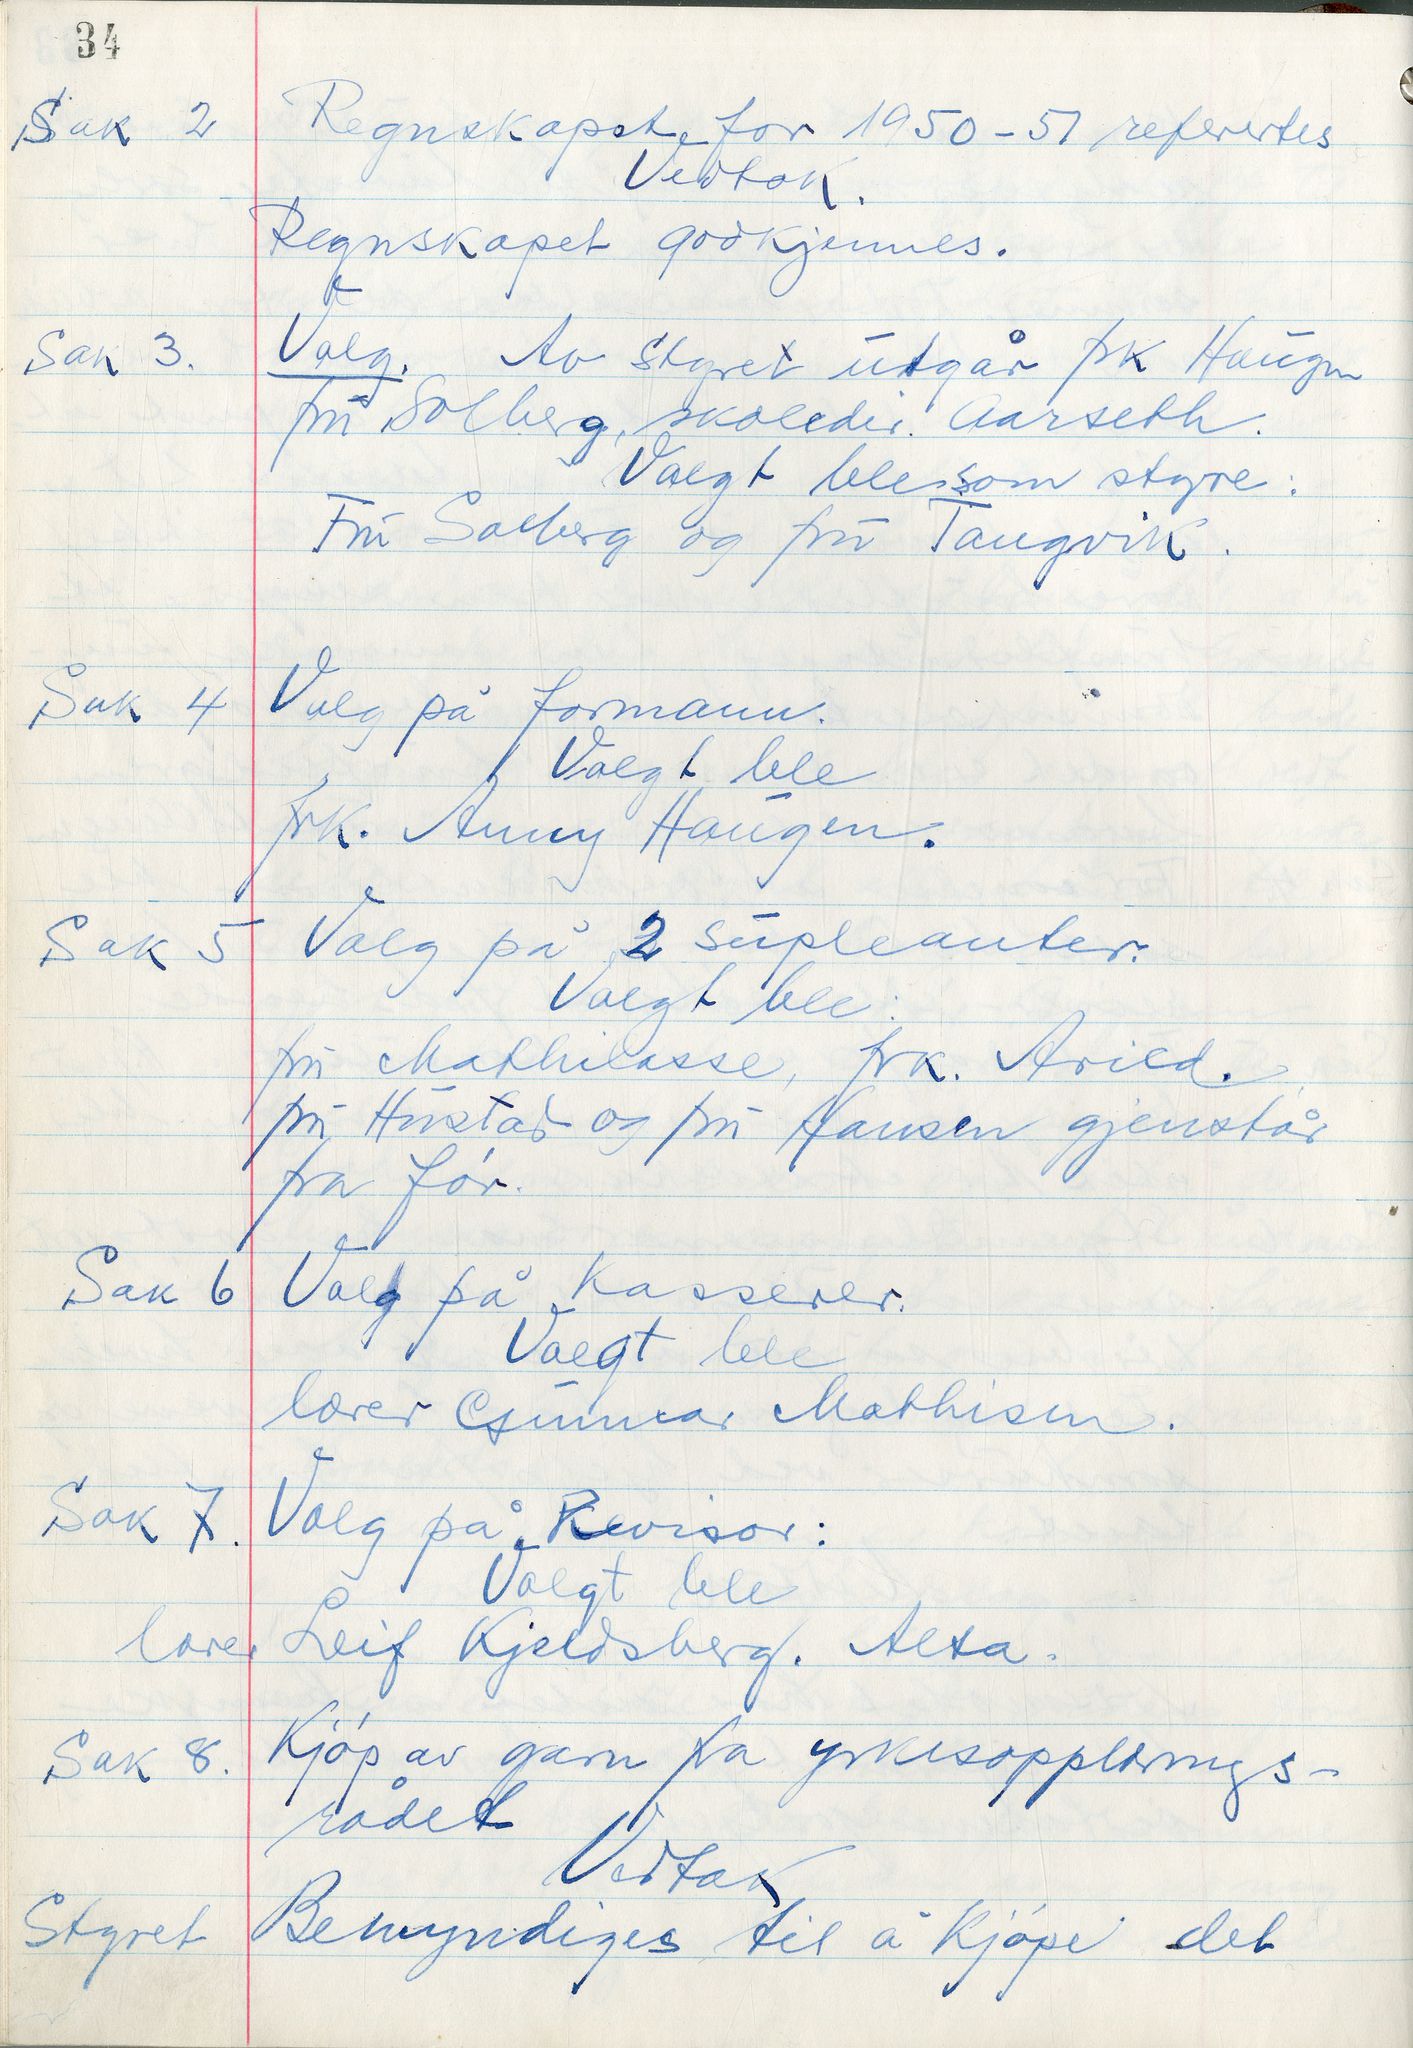 34
Sak 2 Regnskapet for 1950-51 referertes
Vedtak.
Regnskapet godkjennes.
Sak 3. Valg. Av styret utgår frk Haugen
fru Solberg, skoledir. Aarseth.
Valgt ble som styre:
Fru Solberg og fru Tangvik.
Sak 4 Valg på formann.
Valgt ble
frk. Anny Haugen.
Sak 5 Valg på 2 supleanter.
Valgt ble:
fru Mathilasse, frk. Arild.
fru Hustad og fru Hansen gjenstår
fra før.
Sak 6 Valg på kasserer.
Valgt ble
lærer Gunnar Mathisen.
Sak 7. Valg på Revisor:
Valgt ble
lærer Leif Kjeldsberg. Alta.
Sak 8. Kjøp av garn fra yrkesopplærings-
rådet
Vedtak
Styret Bemyndiges til å kjøpe det